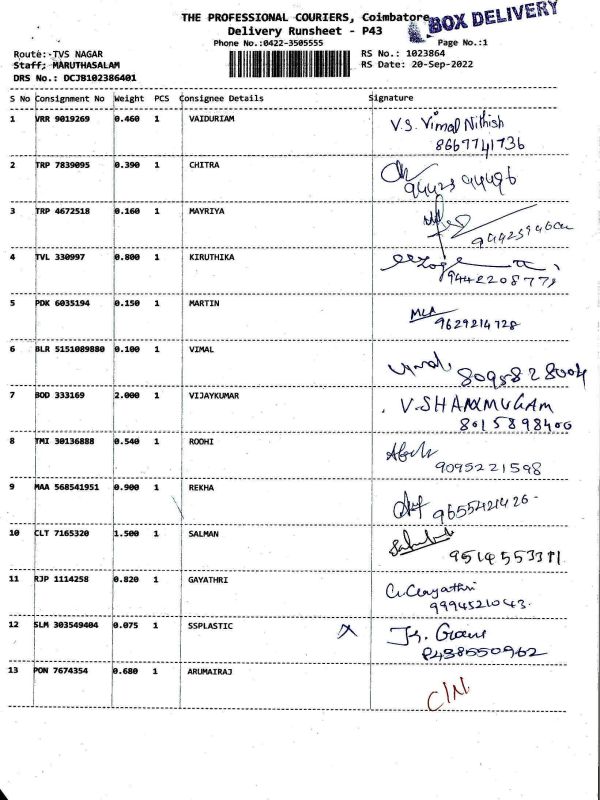 THE PROFESSIONAL COURIERS, Coimbatore
BOX DELIVERY
Delivery Runsheet - P43
Phone No.:0422-3505555
Page No.:1
Route:-TVS NAGAR
RS No.: 1023864
Staff: MARUTHASALAM
RS Date: 20-Sep-2022
DRS No.: DCJB102386401
S No Consignment No Weight PCS Consignee Details Signature
1 VRR 9019269 0.460 1 VAIDURIAM V.S. Vimal Nithish
8667741736
2 TRP 7839095 0.390 1 CHITRA
94423 94496
3 TRP 4672518 0.160 1 MAYRIYA
4 TVL 330997 0.800 1 KIRUTHIKA
5 PDK 6035194 0.150 1 MARTIN
9629214728
6 BLR 5151089880 0.100 1 VIMAL Vimal
8095828004
7 BOD 333169 2.000 1 VIJAYKUMAR V.SHANMUGAM
8015898400
8 TMI 30136888 0.540 1 ROOHI
9095221598
9 MAA 568541951 0.900 1 REKHA
9655421426
10 CLT 7165320 1.500 1 SALMAN
11 RJP 1114258 0.820 1 GAYATHRI G. Gayathri
9994521043.
12 SLM 303549404 0.075 1 SSPLASTIC
13 PON 7674354 0.680 1 ARUMAIRAJ C/N